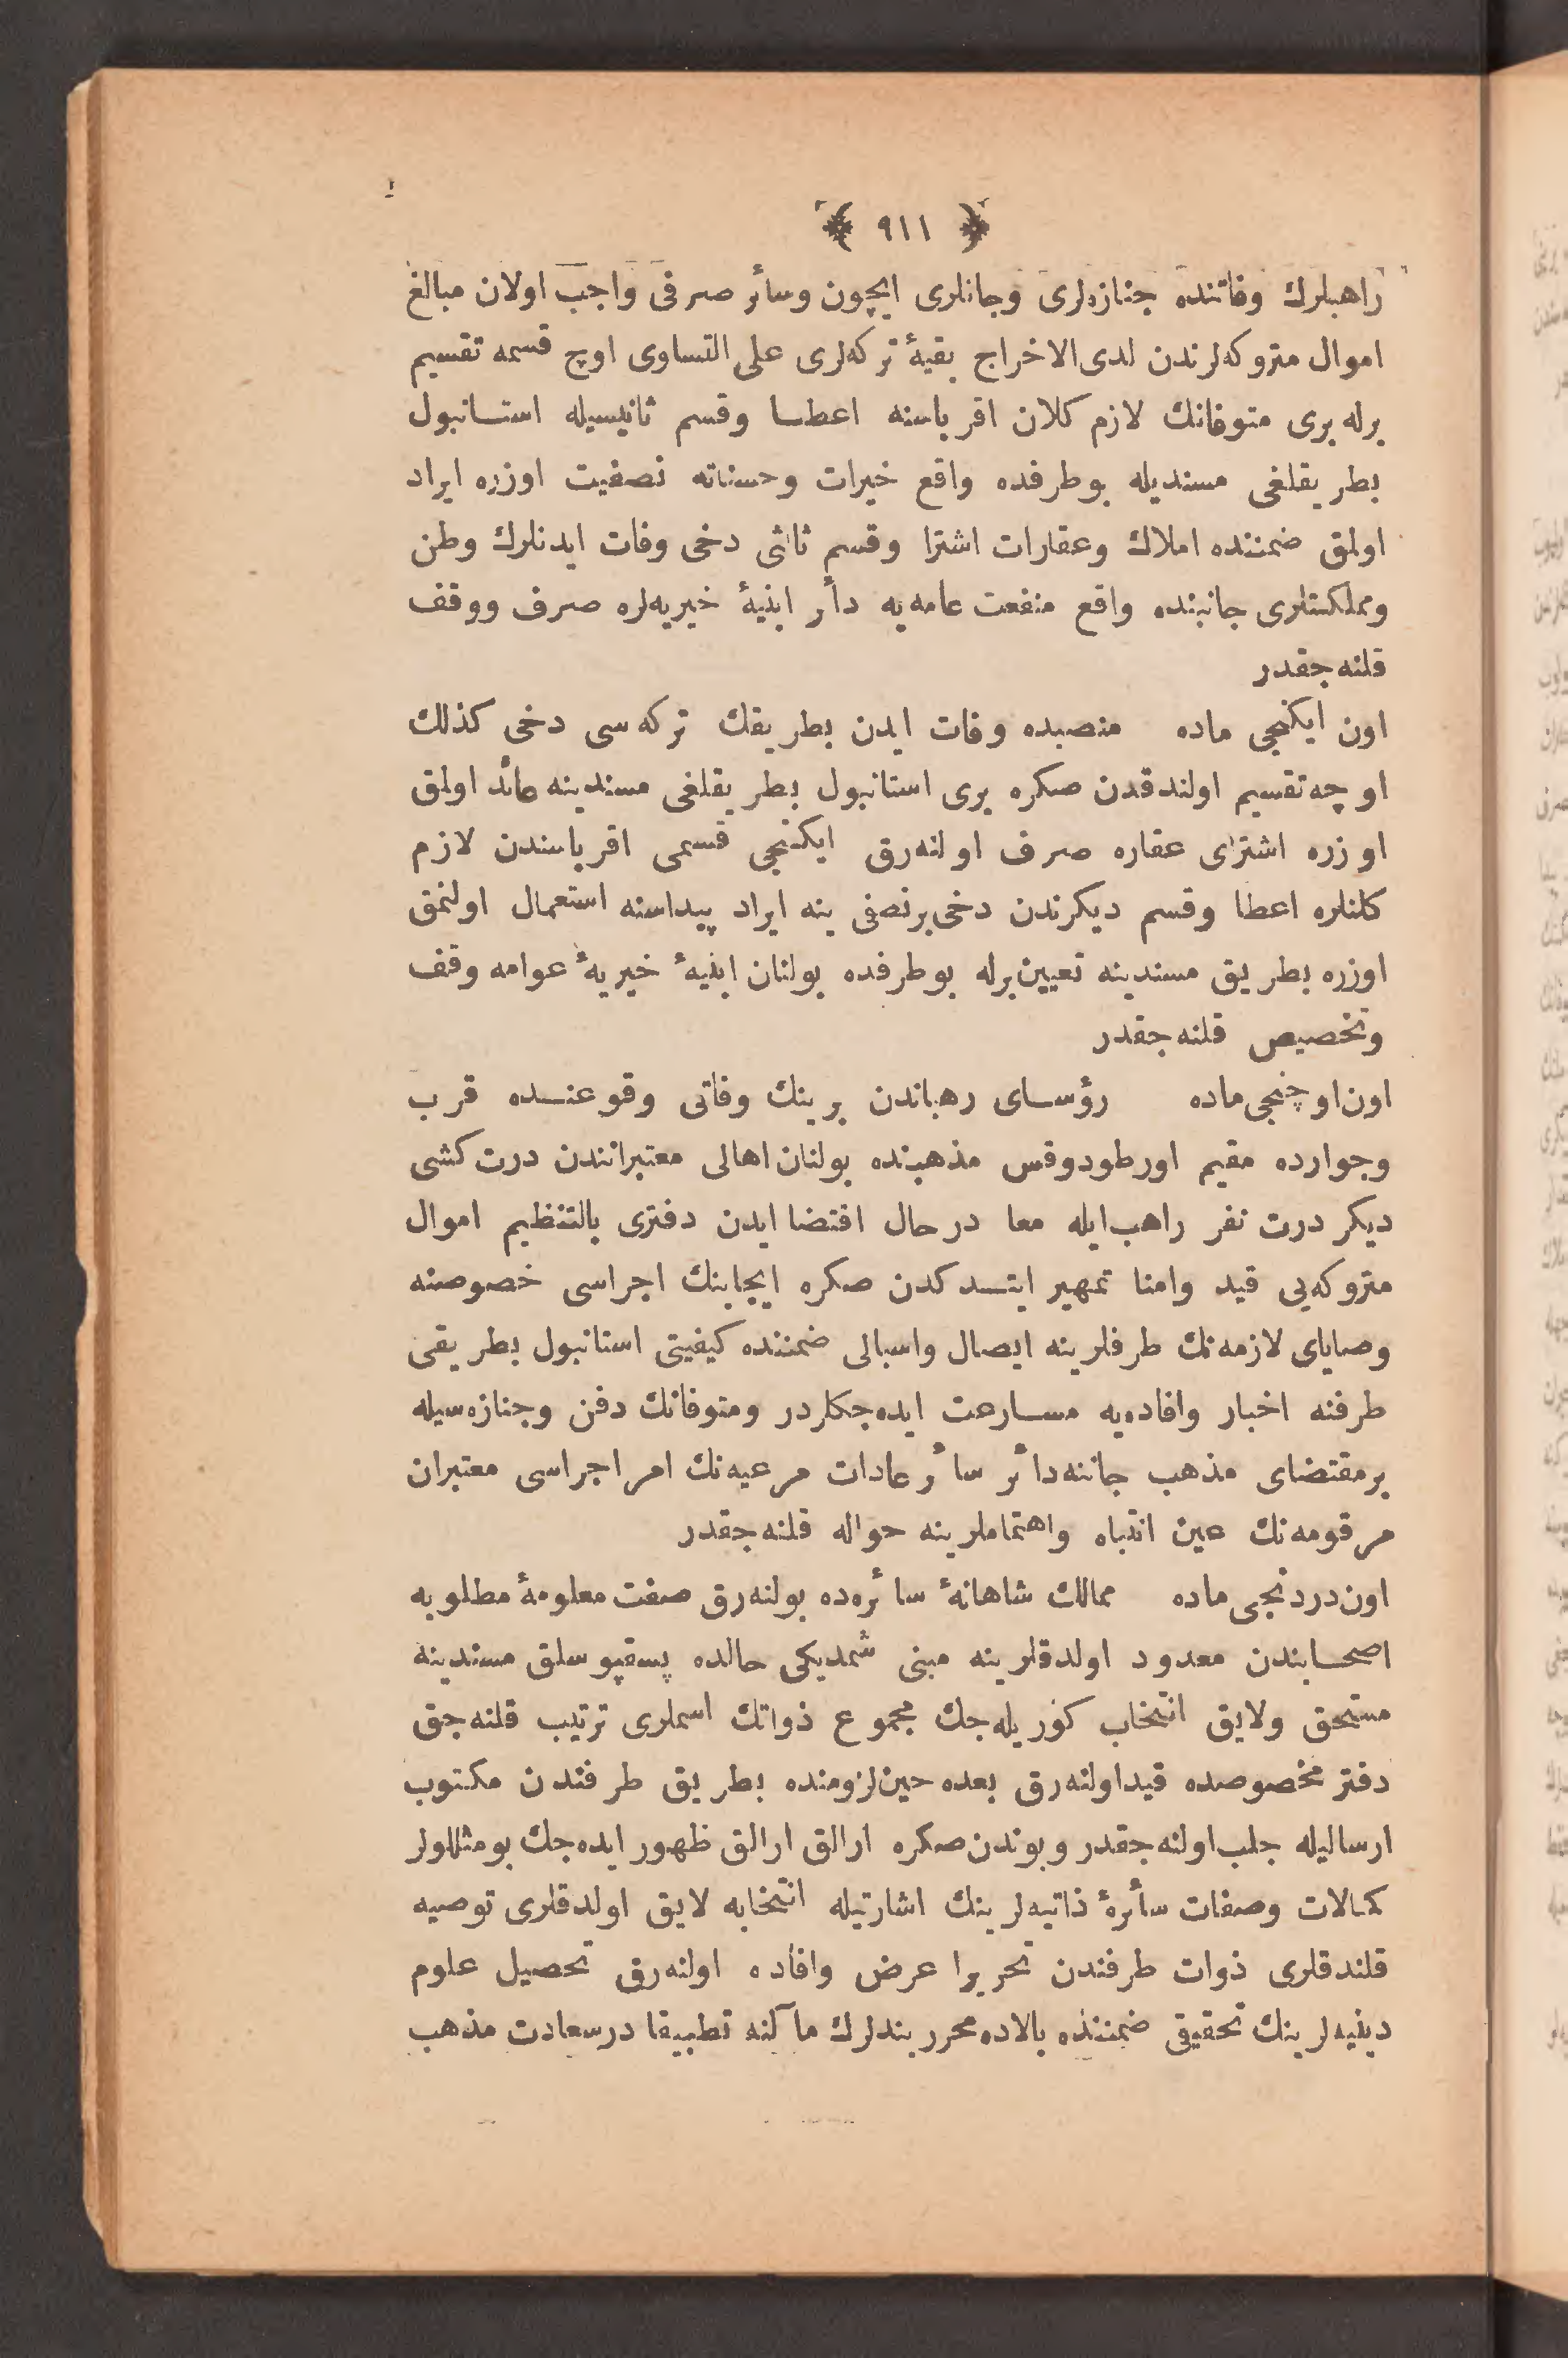 ﴿ ٩١١ ﴾
راهبلرك وفاتنده جنازه‌لری وجانلری ایچون وسائر صرفی واجب اولان مبالغ
اموال متروكه‌لرندن لدی‌الاخراج بقیهٔ تركه‌لری علی التساوی اوچ قسمه تقسیم
برله بری متوفانك لازم كلان اقرباسنه اعطا وقسم ثانیسیله استانبول
بطریقلغی مسندیله بوطرفده واقع خیرات وحسناته نصفیت اوزره ایراد
اولمق ضمننده املاك وعقارات اشترا وقسم ثالثی دخی وفات ایدنلرك وطن
ومملكتلری جانبنده واقع منفعت عامه‌یه دأر ابنیهٔ خیریه‌لره صرف ووقف
قلنه‌جقدر
اون ایكنجی ماده منصبده وفات ایدن بطریقك تركه‌سی دخی كذلك
اوچه‌تقسیم اولندقدن صكره بری استانبول بطریقلغی مسندینه عائد اولمق
اوزره اشترای عقاره صرف اولنه‌رق ایكنجی قسمی اقرباسندن لازم
كلنلره اعطا وقسم دیكرندن دخی‌برنصفی ینه ایراد پیداسنه استعمال اولنمق
اوزره بطریق مسندینه تعیین‌برله بوطرفده بولنان ابنیهٔ خیریهٔ عوامه وقف
وتخصیص قلنه‌جقدر
اون‌اوچنجی‌ماده رؤسای رهباندن برینك وفاتی وقوعنده قرب
وجوارده مقیم اورطودوقس مذهبنده بولنان‌اهالی معتبرانندن درت كشی
دیكر درت نفر راهب‌ایله معا درحال اقتضا ایدن دفتری بالتنظیم اموال
متروكه‌یی قید وامنا تمهیر ایتدكدن صكره ایجابنك اجراسی خصوصنه
وصایای لازمه‌نك طرفلرینه ایصال واسبالی ضمننده كیفیتی استانبول بطریقی
طرفنه اخبار وافاده‌یه مسارعت ایده‌جكلردر ومتوفانك دفن وجنازه‌سیله
برمقتضای مذهب جاننه‌دائر سائر عادات مرعیه‌نك امراجراسی معتبران
مرقومه‌نك عین انتباه واهتماملرینه حواله قلنه‌جقدر
اون‌دردنجی‌ماده ممالك شاهانهٔ سائره‌ده بولنه‌رق صفت معلومهٔ مطلوبه
اصحابندن معدود اولدقلرینه مبنی شمدیكی حالده پسقپوسلق مسندینه
مستحق ولایق انتخاب كوریله‌جك مجموع ذواتك اسملری ترتیب قلنه‌جق
دفتر مخصوصده قیداولنه‌رق بعده حین‌لزومنده بطریق طرفندن مكتوب
ارسالیله جلب‌اولنه‌جقدر وبوندن‌صكره ارالق ارالق ظهور ایده‌جك بومثللولر
كمالات وصفات سأرهٔ ذاتیه‌لرینك اشارتیله انتخابه لایق اولدقلری توصیه
قلندقلری ذوات طرفندن تحریرا عرض وافاده اولنه‌رق تحصیل علوم
دینیه‌لرینك تحقیقی ضمننده بالاده‌محرر بندلرك مآلنه تطبیقا درسعادت مذهب